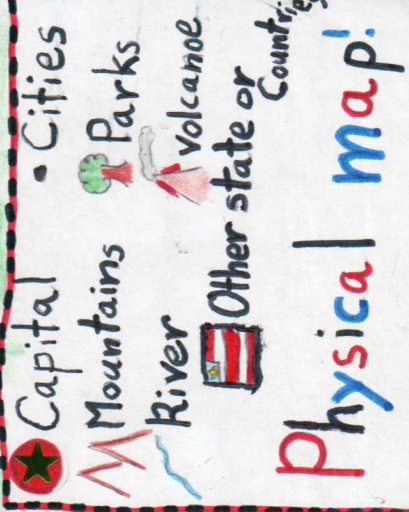 Capital • Cities
Mountains Parks
River Volcanoe
Other state or
Countries
Physical map!